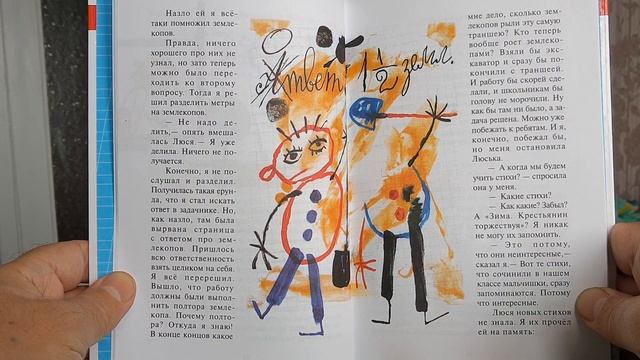 Назло ей я всё-
таки помножил земле-
копов.
Правда, ничего
хорошего про них не
узнал, но зато теперь
можно было пере-
ходить ко второму
вопросу. Тогда я ре-
шил разделить метры
на землекопов.
— Не надо де-
лить,— опять вмеша-
лась Люся.— Я уже
делила. Ничего не по-
лучается.
Конечно, я не по-
слушал и разделил.
Получилась такая ерун-
да, что я стал искать
ответ в задачнике. Но,
как назло, там была
вырвана страница
с ответом про зем-
лекопов. Пришлось
всю ответственность
взять целиком на себя.
Я всё перерешил.
Вышло, что работу
должны были выпол-
нить полтора земле-
копа. Почему полто-
ра? Откуда я знаю!
В конце концов какое
Ответ: 1 1/2 земл.
мне дело, сколько зем-
лекопов рыли эту самую
траншею? Кто теперь
вообще роет землеко-
пами? Взяли бы эк-
скаватор и сразу бы по-
кончили с траншеей.
И работу бы скорей сде-
лали, и школьникам бы
голову не морочили. Ну
как бы там ни было, а за-
дача решена. Можно уже
побежать к ребятам. И я,
конечно, побежал бы,
но меня остановила
Люська.
— А когда мы будем
учить стихи? — спросила
она у меня.
— Какие стихи?
— Как какие? Забыл?
А «Зима. Крестьянин
торжествуя»? Я никак
не могу их запомнить.
— Это потому,
что они неинтересные,—
сказал я.— Вот те стихи,
что сочинили в нашем
классе мальчишки, сразу
запоминаются. Потому
что интересные.
Люся новых стихов
не знала. Я их прочёл
ей на память: